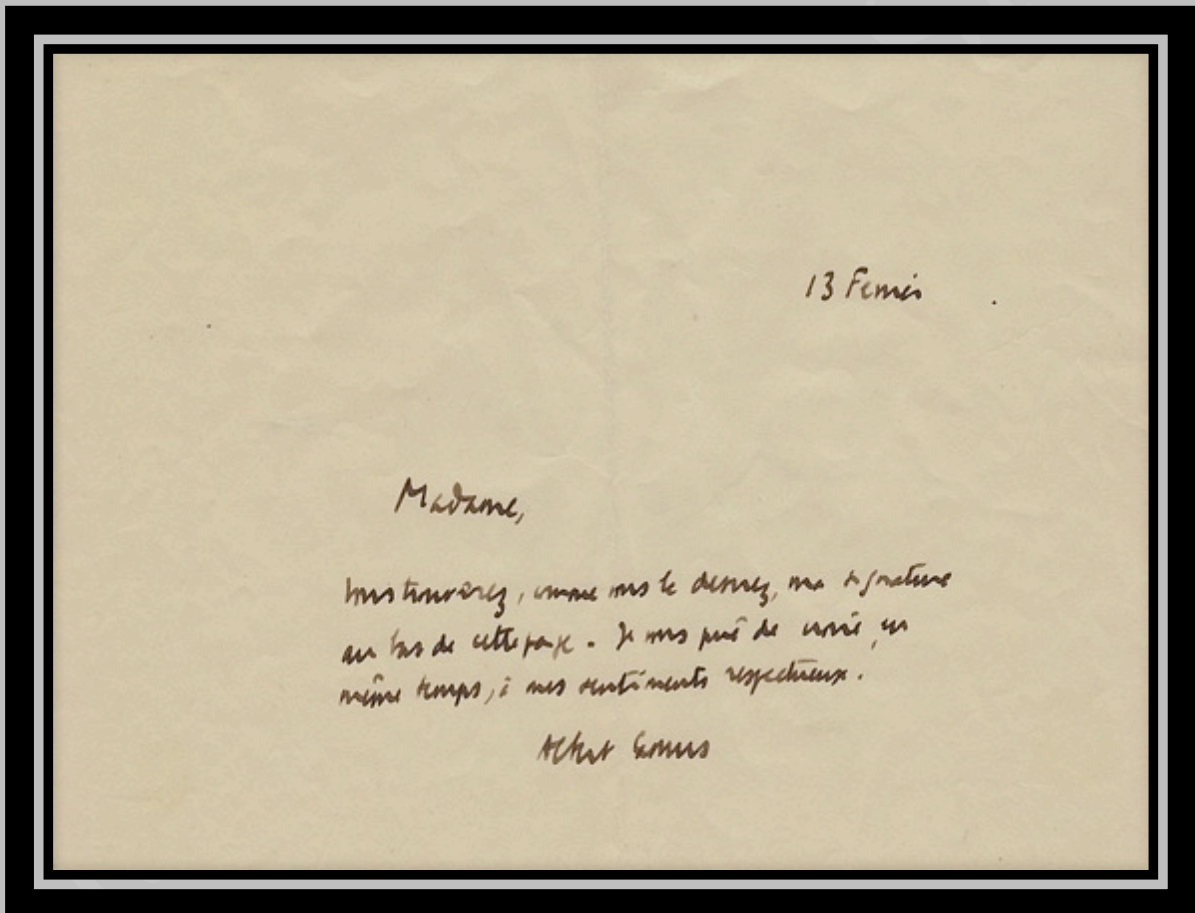 13 Fevrier
Madame,
Vous trouverez, comme vous le desirez, ma signature
au bas de cette page. Je vous prie de croire, en
même temps, à mes sentiments respectueux.
Albert Camus